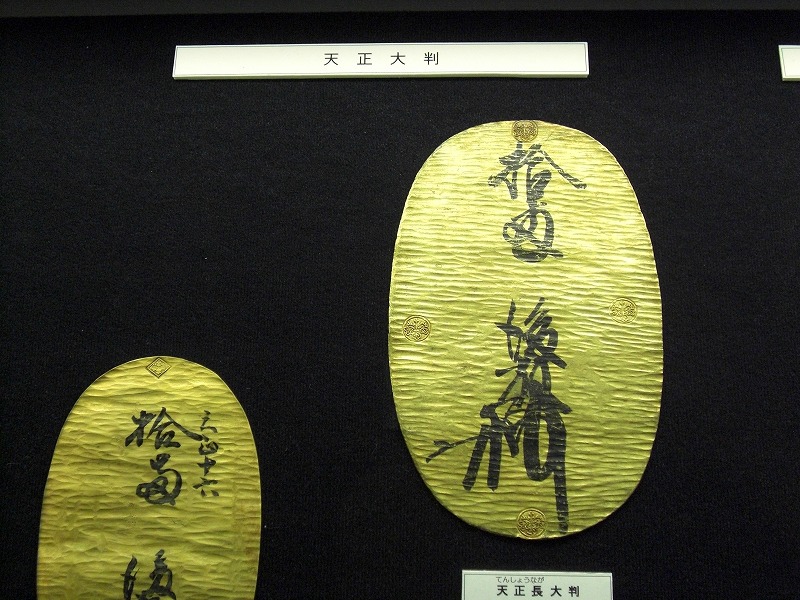 天正大判
拾両
後藤
天正十六
拾両
てんしょうなが
天正長大判